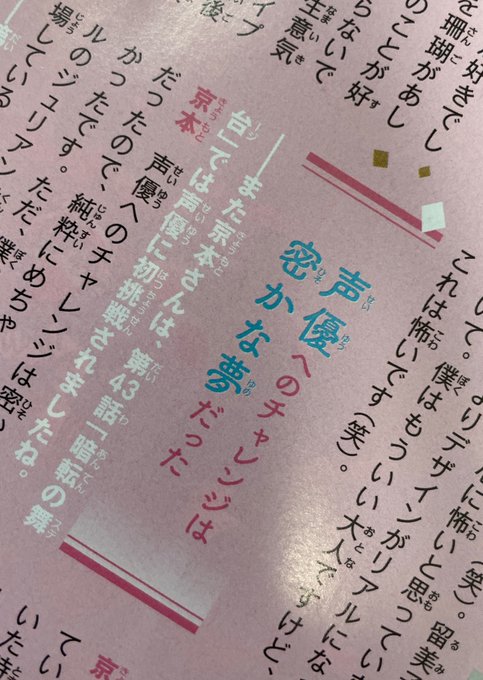 好きでし
を珊瑚があし
のことが好
らないで
生意気
イブ
後
に怖い（笑）。留美
怖いと思ってい
よりデザインがリアルにな
いて。僕はもういい大人ですけど、
これは怖いです（笑）。
声優へのチャレンジは
密かな夢だった
――また京本さんは、第43話「暗転の舞
台」では声優に初挑戦されましたね。
京本　声優へのチャレンジは密
だったので、純粋にめちゃ
かったです。ただ、僕
ルのジュリアン
場している
京
てい
いた